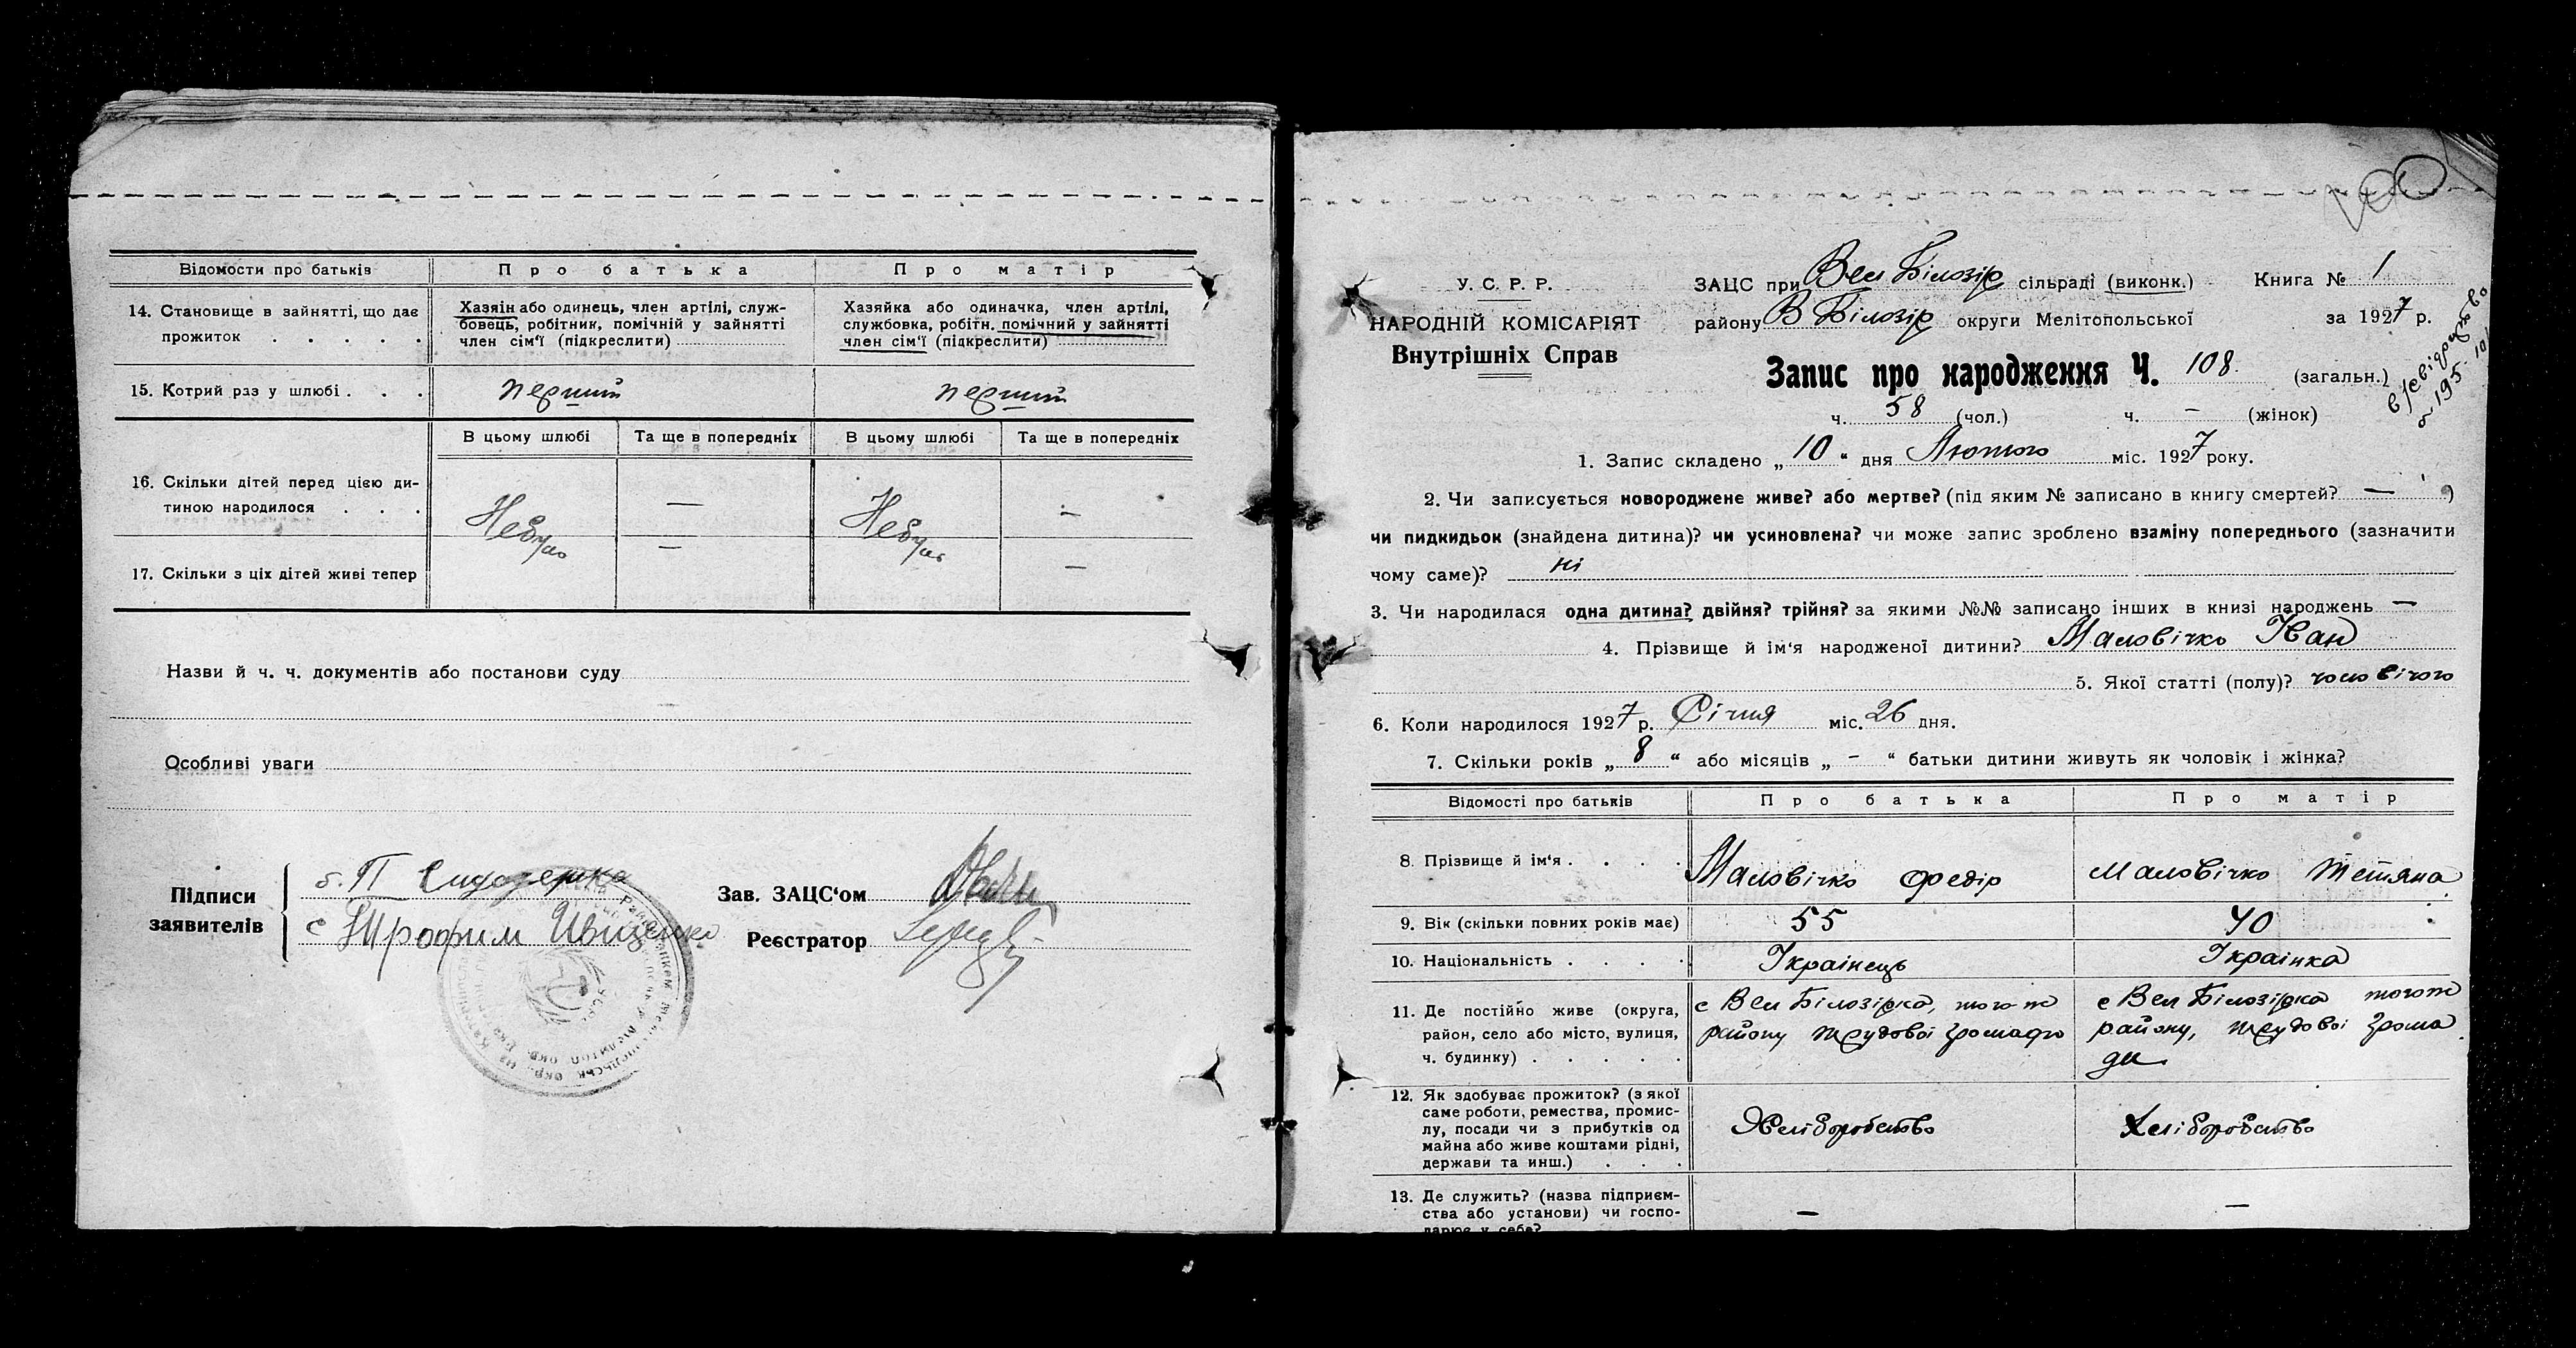 Відомости про батьків
Про батька
Про матір
14. Становище в зайнятті, що дає
прожиток . . . . .
Хазяїн або одинець, член артілі, служ-
бовець, робітник, помічній у зайнятті
член сім'ї (підкреслити)
Хазяйка або одиначка, член артілі,
службовка, робітн. помічний у зайнятті
член сім'ї (підкреслити)
15. Котрий раз у шлюбі . . .
перший
перший
В цьому шлюбі
Та ще в попередніх
В цьому шлюбі
Та ще в попередніх
16. Скільки дітей перед цією ди-
тиною народилося . . .
Небуло
—
Небуло
—
17. Скільки з ціх дітей живі тепер
—
—
Назви й ч. ч. документів або постанови суду
Особливі уваги
Підписи
заявителів
с Трофим Ивіщенко
Зав. ЗАЦС'ом
Реєстратор
У. С. Р. Р.
НАРОДНІЙ КОМІСАРІЯТ
Внутрішніх Справ
ЗАЦС при Вел Білозір сільраді (виконк.)
Книга № 1
району В Білозір округи Мелітопольської
за 1927 р.
Запис про народження Ч. 108 (загальн.)
ч. 58 (чол.) ч. — (жінок)
1. Запис складено „10“ дня Лютого міс. 1927 року.
2. Чи записується новороджене живе? або мертве? (під яким № записано в книгу смертей? — )
чи пидкидьок (знайдена дитина)? чи усиновлена? чи може запис зроблено взаміну попереднього (зазначити
чому саме)? ні
3. Чи народилася одна дитина? двійня? трійня? за якими №№ записано інших в книзі народжень —
4. Прізвище й ім'я народженої дитини? Маловічко Іван
5. Якої статті (полу)? чоловічого
6. Коли народилося 1927 р. Січня міс. 26 дня.
7. Скільки років „8“ або місяців „–“ батьки дитини живуть як чоловік і жінка?
Відомості про батьків
Про батька
Про матір
8. Прізвище й ім'я . . . .
Маловічко Федір
Маловічко Тетяна
9. Вік (скільки повних років має)
55
40
10. Національність . . . .
Українець
Українка
11. Де постійно живе (округа,
район, село або місто, вулиця,
ч. будинку) . . . . .
с Вел Білозірка, того ж
району трудової громади
с Вел Білозірка того ж
району, трудової грома
ди
12. Як здобуває прожиток? (з якої
саме роботи, ремества, промис-
лу, посади чи з прибутків од
майна або живе коштами рідні,
держави та инш.) . . .
Хліборобство
Хліборобство
13. Де служить? (назва підприєм-
ства або установи) чи госпо-
дарює у себе?
—
—